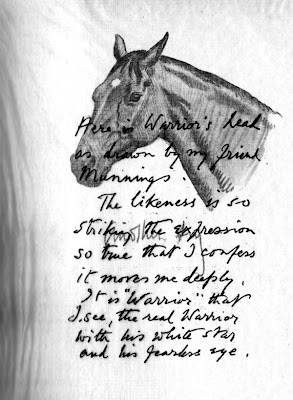 Here is Warrior's head
as drawn by my friend
Munnings.
The likeness is so
striking, the expression
so true that I confess
it moves me deeply.
It is "Warrior" that
I see, the real Warrior
with his white star
and his fearless eye.